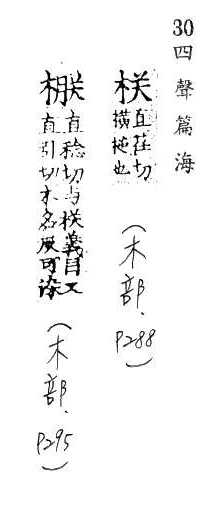 30 四聲篇海
栚 直荏切
橫槌也
(木部. P288)
㮳 直稔切与栚義同又
直引切木名灰可染
(木部. P295)